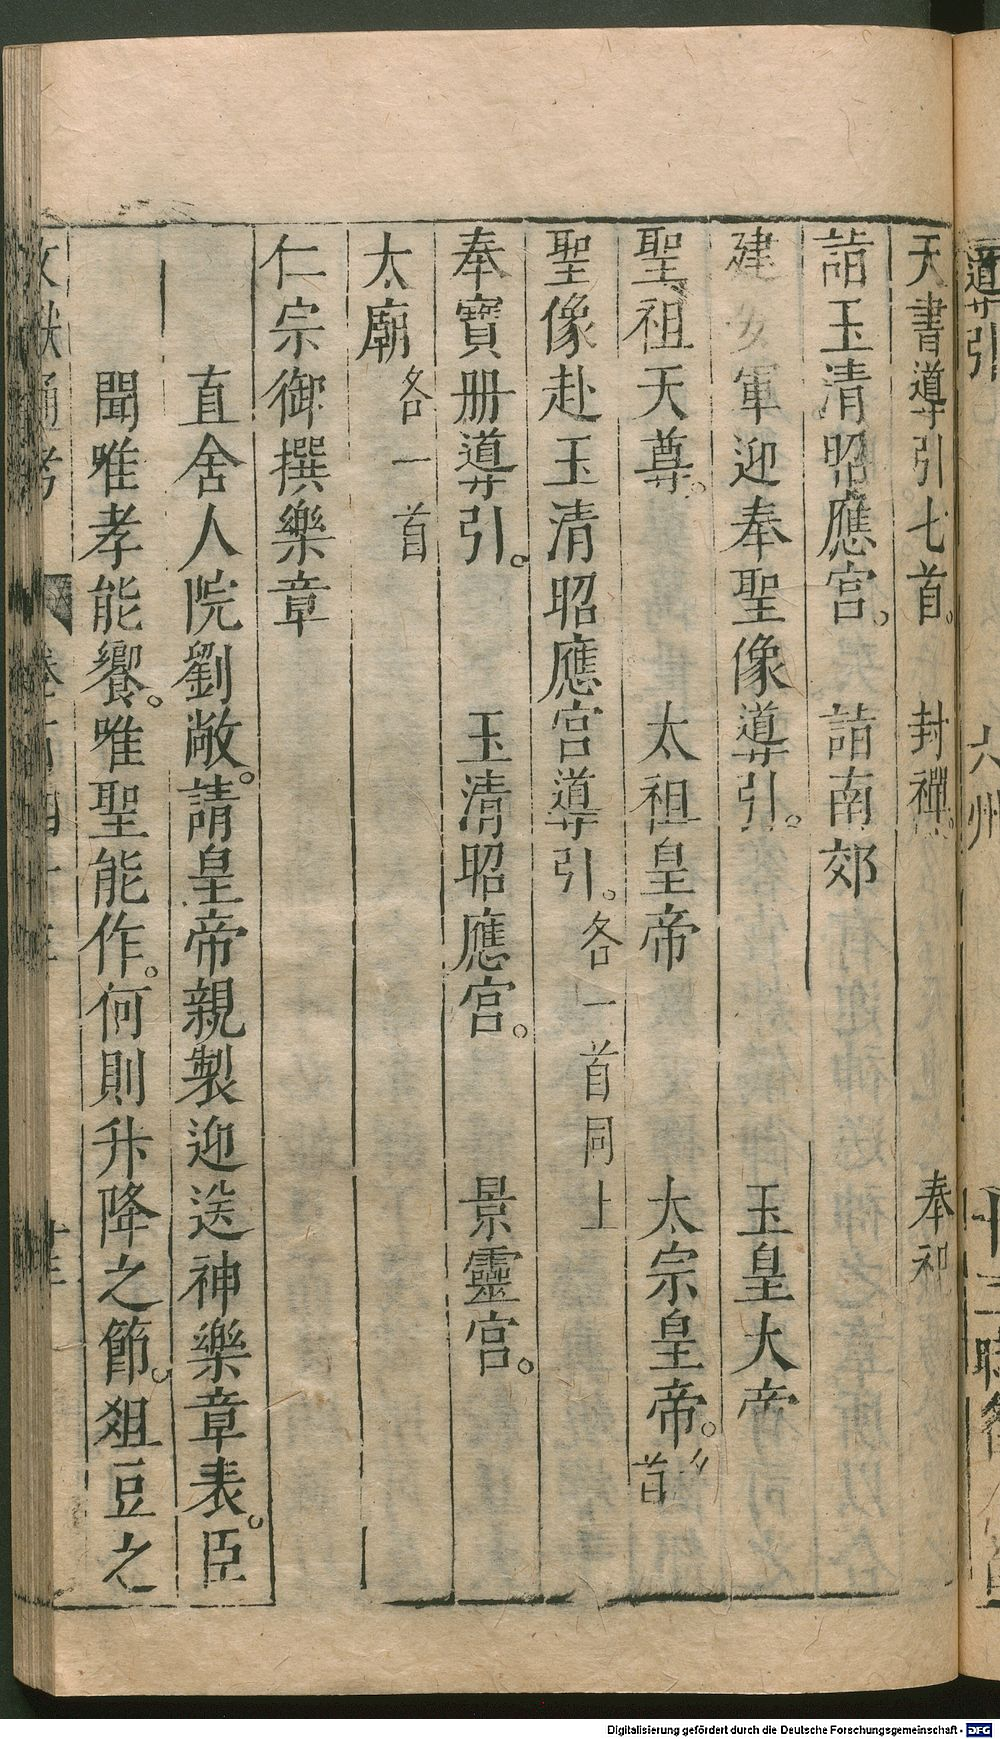 導引 六州 十二時
天書導引七首。 封禪。 奉祀
詣玉清昭應宮。 詣南郊
建安軍迎奉聖像導引。 玉皇大帝
聖祖天尊。 太祖皇帝 太宗皇帝。
聖像赴玉清昭應宮導引。各一首同上
奉寶册導引。 玉清昭應宮。 景靈宮。
太廟各一首
仁宗御撰樂章
直舍人院劉敞。請皇帝親製迎送神樂章表。臣
聞唯孝能饗。唯聖能作。何則升降之節。俎豆之
文獻通考
Digitalisierung gefördert durch die Deutsche Forschungsgemeinschaft - DFG